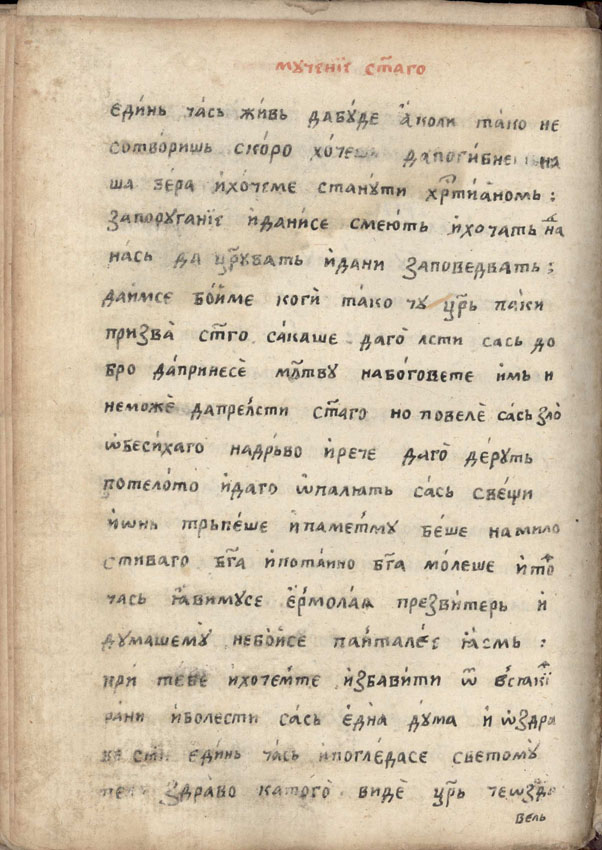 мꙋченїе ст҃аго
еди́нь ча́сь жи́вь дабꙋ́де а҆́коли та́ко не
сотво́ришь ско́ро хо́чеш да погибне на
ша ве́ра и҆хо́чеме станꙋти хрⷭ҇тиꙗ҆номь :
запорꙋгани́е и҆дани́се смею́ть и҆хо́чать на
на́сь да цр҃ꙋвать и҆да́ни заповедвать :
даи́мсе бои́ме коги̏ та́ко чꙋ цр҃ь па́ки
призва̀ ст҃го са́каше даго̀ лсти са́сь до
бро да́принесѐ мл҃твꙋ набо́говете и҆мь и
неможѐ дапре́лсти ст҃аго но повелѐ са́сь зло̀
ѡ҆бесиха́го надрь́во и҆́рече даго̀ де́рꙋть
потело́то и҆даго ѡ҆палю́ть са́сь све́щи
и҆ѡ́нь трьпе́ше и҆паме́тмꙋ бе́ше намило
стиваго бг҃а и҆пота́ино бг҃а мо́леше и҆то
ча́сь ꙗ҆ви́мꙋсе е҆рмола́ꙗ презви́терь и҆
дꙋ́машемꙋ̀ небо́йсе пан҆тале́е ꙗ҆́смь :
при́ те́бе и҆хоте́мте и҆збави́ти ѿ в҆сꙗкїи
ра́ни и҆болести са́сь е҆дна̀ дꙋ́ма и҆ ѡ҆здра
ве еди́нь ча́сь и҆погле́дасе све́томꙋ̀
здра́во като́го̀ видѐ цр҃ь чеѡ҆здра
вель